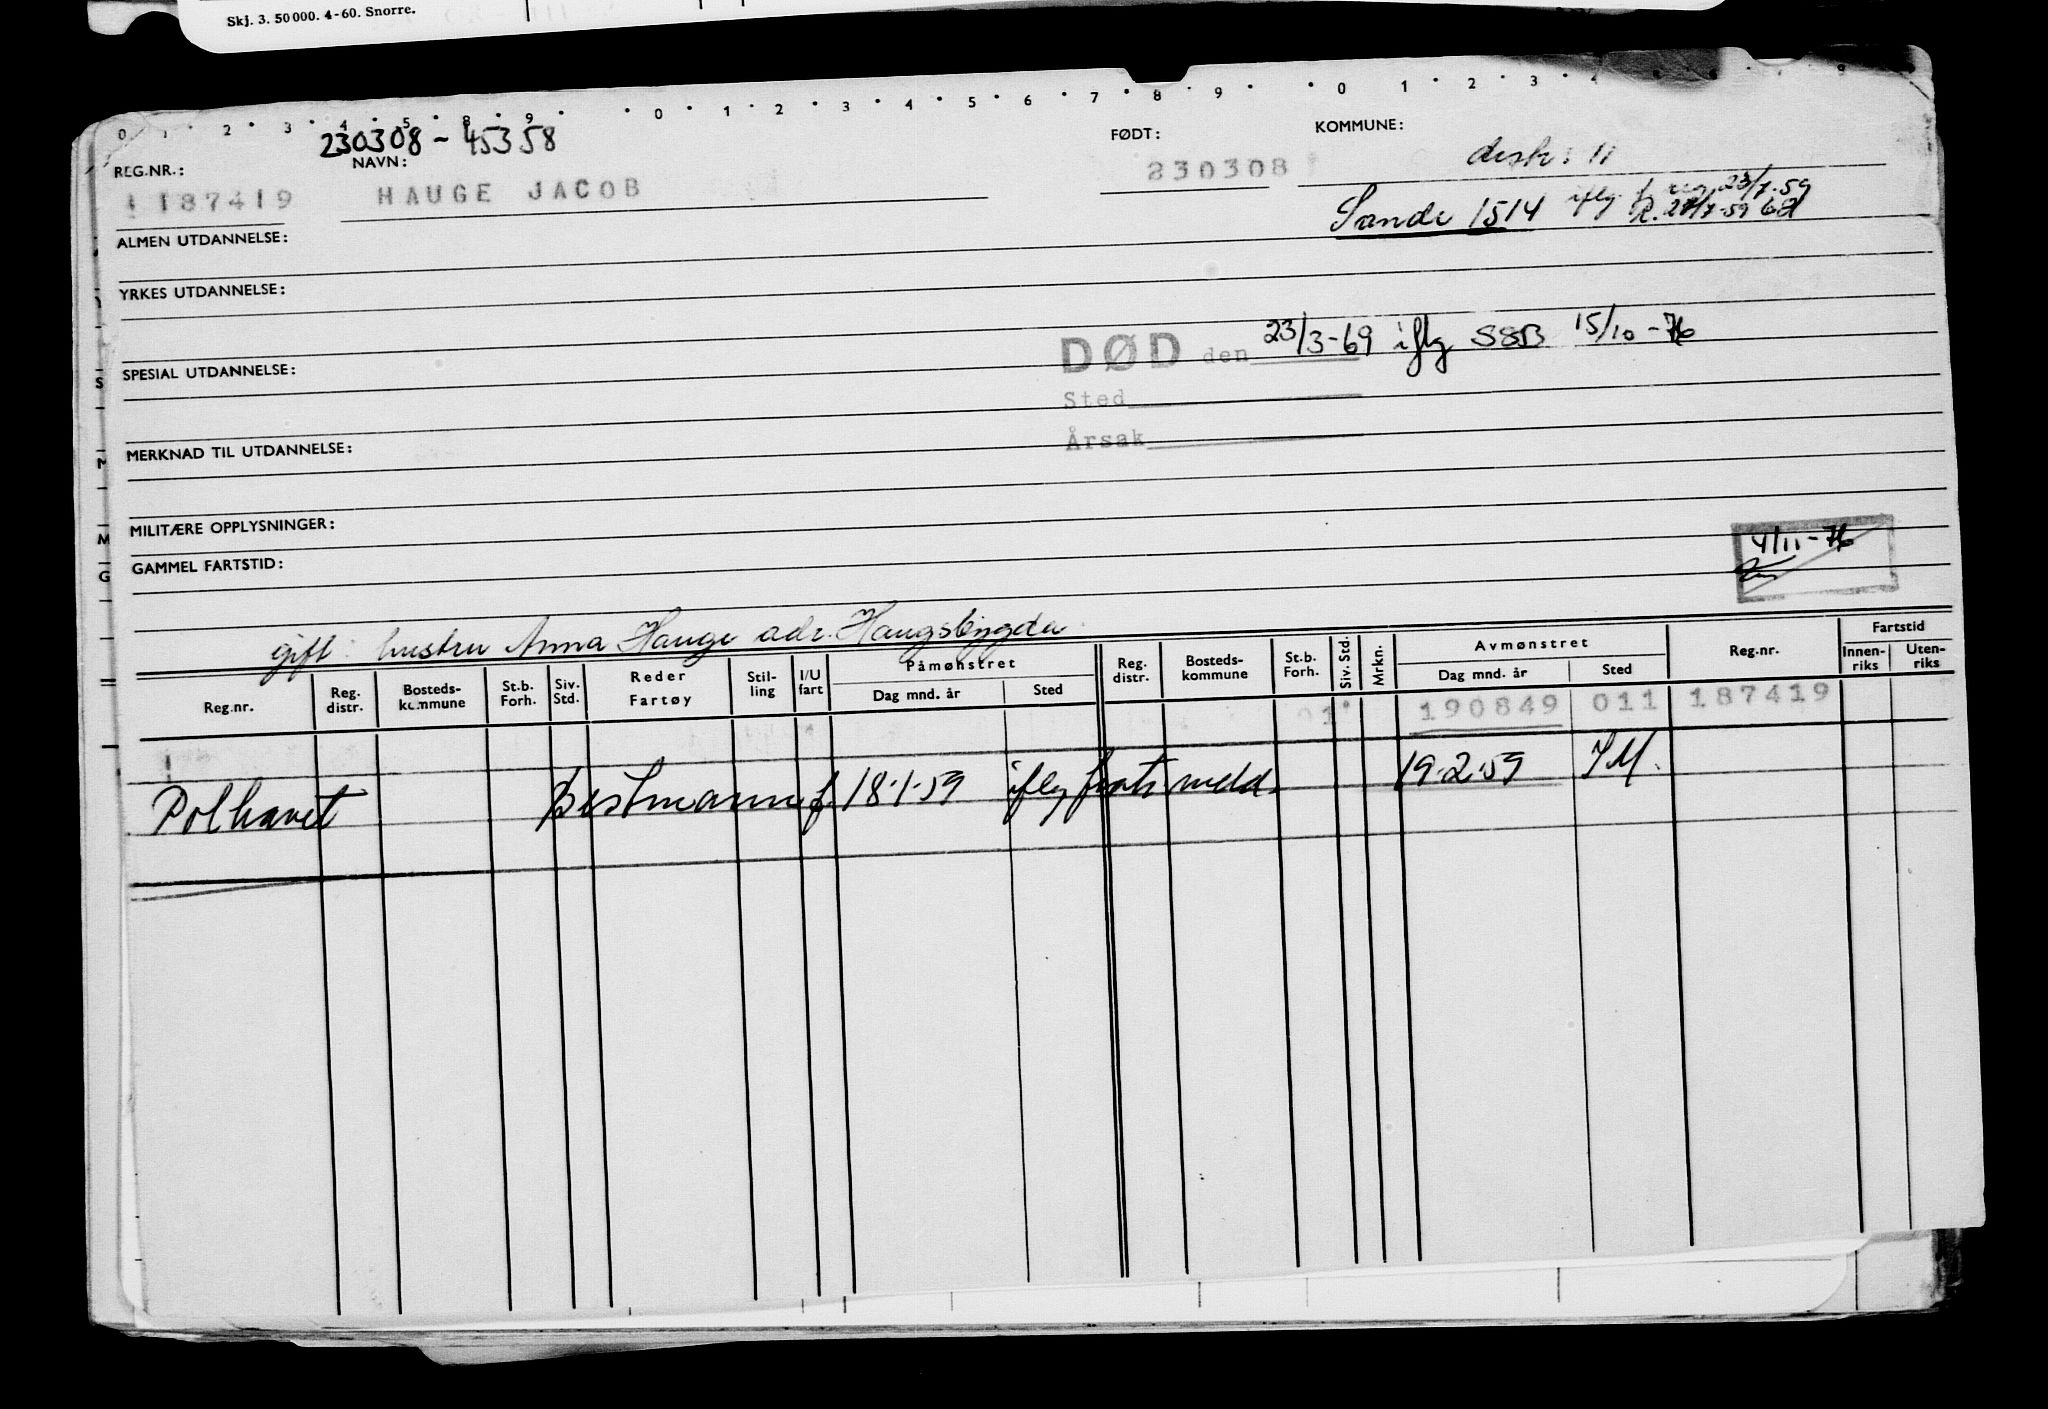 Skj. 3. 50 000. 4-60. Snorre.
0 1 2 3 4 5 8 9 0 1 2 3 4 5 6 7 8 9 0 1 2 3 4
230308 - 45358
REG.NR.: NAVN: FØDT: KOMMUNE:
distr. 11
187419 HAUGE JACOB 230308
Sande 1514 iflg. f. reg. 23/7-59
R. 27/7-59
ALMEN UTDANNELSE:
YRKES UTDANNELSE:
DØD den 23/3-69 iflg SSB 15/10-76
SPESIAL UTDANNELSE:
Sted
Årsak
MERKNAD TIL UTDANNELSE:
MILITÆRE OPPLYSNINGER:
4/11-76
GAMMEL FARTSTID:
gift: hustru Anna Hauge adr. Haugsbygda
Reg.nr. Reg. distr. Bosteds-kommune St.b. Forh. Siv. Std. Reder Fartøy Stil-ling I/U fart Påmønstret Dag mnd. år Sted Reg. distr. Bosteds-kommune St.b. Forh. Siv. Std. Mrkn. Avmønstret Dag mnd. år Sted Reg.nr. Fartstid Innen-riks Uten-riks
01 190849 011 187419
Polhavet Bestmann f. 18-1-59 iflg frats meld. 19-2-59 IM.